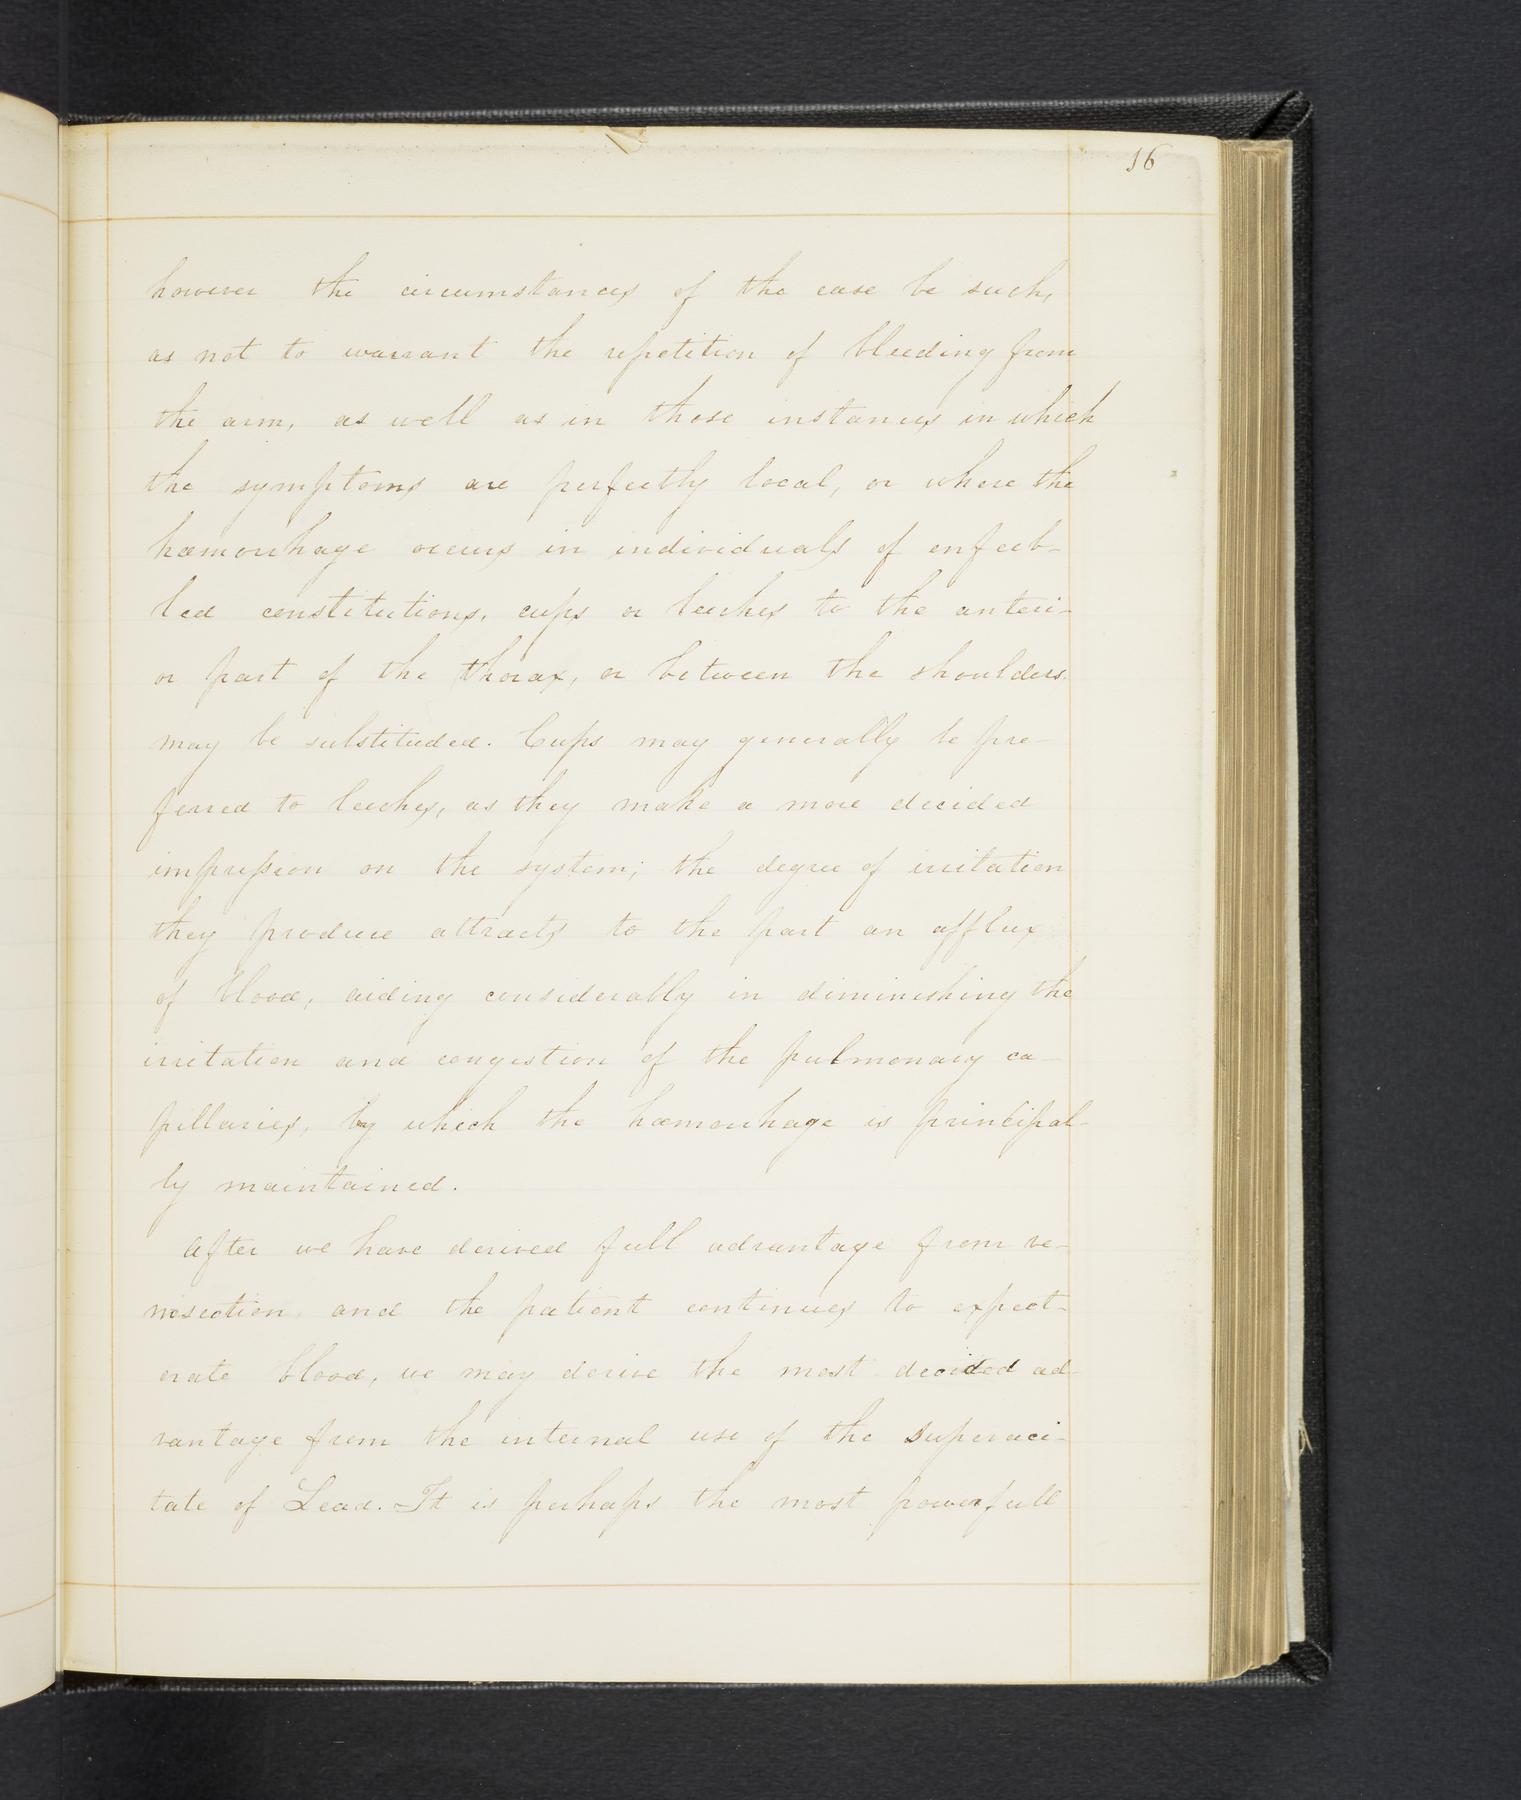 16
however the circumstances of the case be such,
as not to warrant the repetition of bleeding from
the arm, as well as in those instances in which
the symptoms are perfectly local, or where the
hæmorrhage occurs in individuals of enfeeb-
led constitutions, cups or leeches to the anteri-
or part of the thorax, or between the shoulders
may be substituded. Cups may generally be pre-
ferred to leeches, as they make a more decided
impression on the system; the degree of irritation
they produce attracts to the part an afflux
of blood, aiding considerably in diminishing the
irritation and congestion of the pulmonary ca-
pillaries, by which the hæmorrhage is principal-
ly maintained.
After we have derived full advantage from ve-
nisection, and the patient continues to expect-
orate blood, we may derive the most decided ad-
vantage from the internal use of the superaci-
tate of Lead. It is perhaps the most powerfull